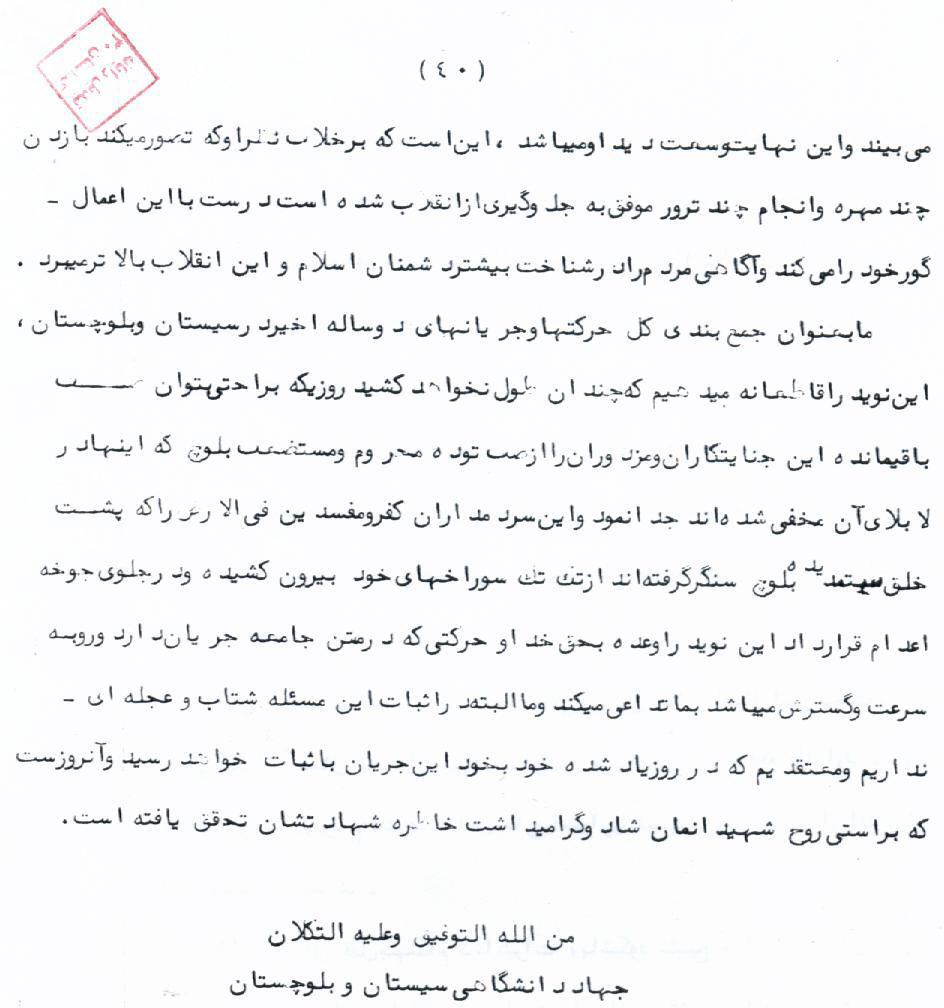 (٤٠)
می‌بیند واین نهایت‌وسعت دید اومیباشد ، این‌است که برخلاف نظراوکه تصورمیکند بازدن
چند مهره وانجام چند ترور موفق‌به جلوگیری‌ازانقلاب شده است‌درست بااین اعمال -
گورخود رامی‌کند وآگاهی‌مردم‌رادرشناخت بیشتردشمنان اسلام و این انقلاب بالا ترمیبرد .
مابعنوان جمع‌بندی کل حرکتهاوجریانهای دوساله اخیردرسیستان وبلوچستان ،
این‌نوید راقاطعانه میدهیم که‌چندان طول نخواهد کشید روزیکه براحتی‌بتوان صف
باقیمانده این جنایتکاران‌ومزدوران‌راازصف توده محروم ومستضعف بلوچ که اینهادر
لابلای‌آن مخفی‌شده‌اند جدانمود واین‌سردمداران کفرومفسدین فی‌الارض راکه پشت
خلق ستمدیده بلوچ سنگرگرفته‌اند ازتک تک سوراخهای خود بیرون کشیده ودرجلوی‌جوخه
اعدام قرارداد این نوید راوعده بحق خداو حرکتی‌که درمتن جامعه جریان‌دارد وروبه
سرعت وگسترش‌میباشد بماتداعی‌میکند وماالبته‌دراثبات این مسئله شتاب و عجله ای -
نداریم ومعتقدیم که در روزیاد شده خود بخود این‌جریان باثبات خواهد رسید وآنروزست
که براستی‌روح شهیدانمان شاد وگرامیداشت خاطره شهادتشان تحقق یافته است.
من الله التوفیق وعلیه التکلان
جهاددانشگاهی‌سیستان و بلوچستان